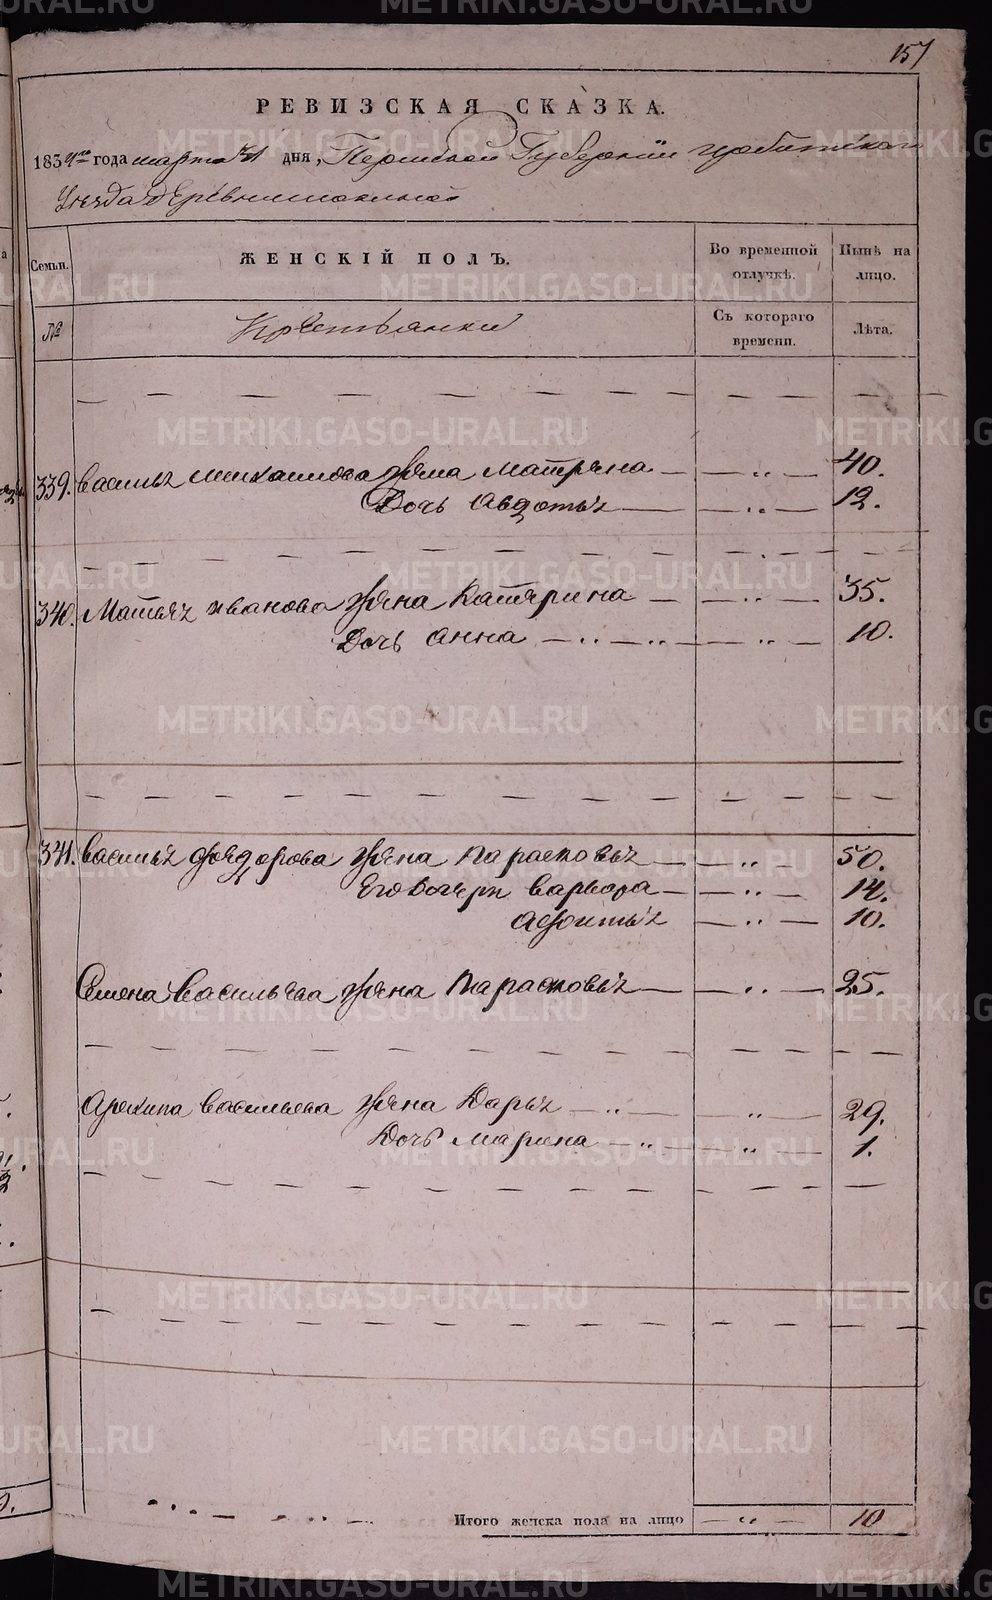 157
РЕВИЗСКАЯ СКАЗКА.
1834го года марта 31 дня, Пермской Губернии ирбитского
Уезда деревни
Семьи. ЖЕНСКІЙ ПОЛЪ. Во временной отлучкѣ. Нынѣ на лицо.
№ Крестьянки Съ котораго времени. Лѣта.
339. василья михаилова жена матрена — „ — 40.
Дочь Авдотья — „ — 12.
340. Матвея иванова жена Катерина — „ — 35.
Дочь анна — „ — „ — „ — 10.
341. василья федорова жена парасковья — „ — 50.
Его Дочери варвара — „ — 14.
Афимья — „ — 10.
Семена васильева жена парасковья — „ — 25.
Архипа васильева жена Дарья — „ — „ — 29.
Дочь марина — „ — „ — 1.
Итого женска пола на лицо — „ — 10
METRIKI.GASO-URAL.RU